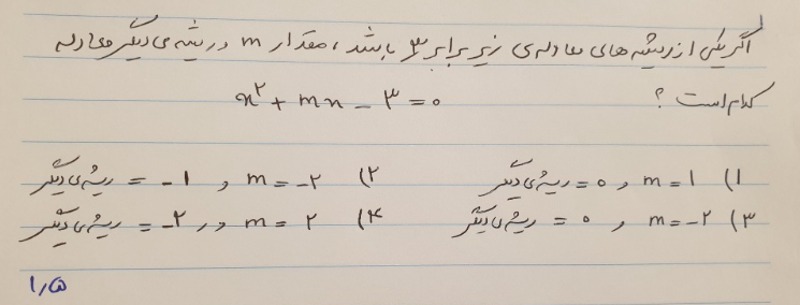 اگر یکی از ریشه های معادله ی زیر برابر ۳ باشد، مقدار m و ریشه ی دیگر معادله
کدام است ؟ x² + mx - ۳ = ۰
۱) m = ۱ و ۰ = ریشه ی دیگر ۲) m = -۲ و -۱ = ریشه ی دیگر
۳) m = -۲ و ۰ = ریشه ی دیگر ۴) m = ۲ و -۲ = ریشه ی دیگر
۱٫۵